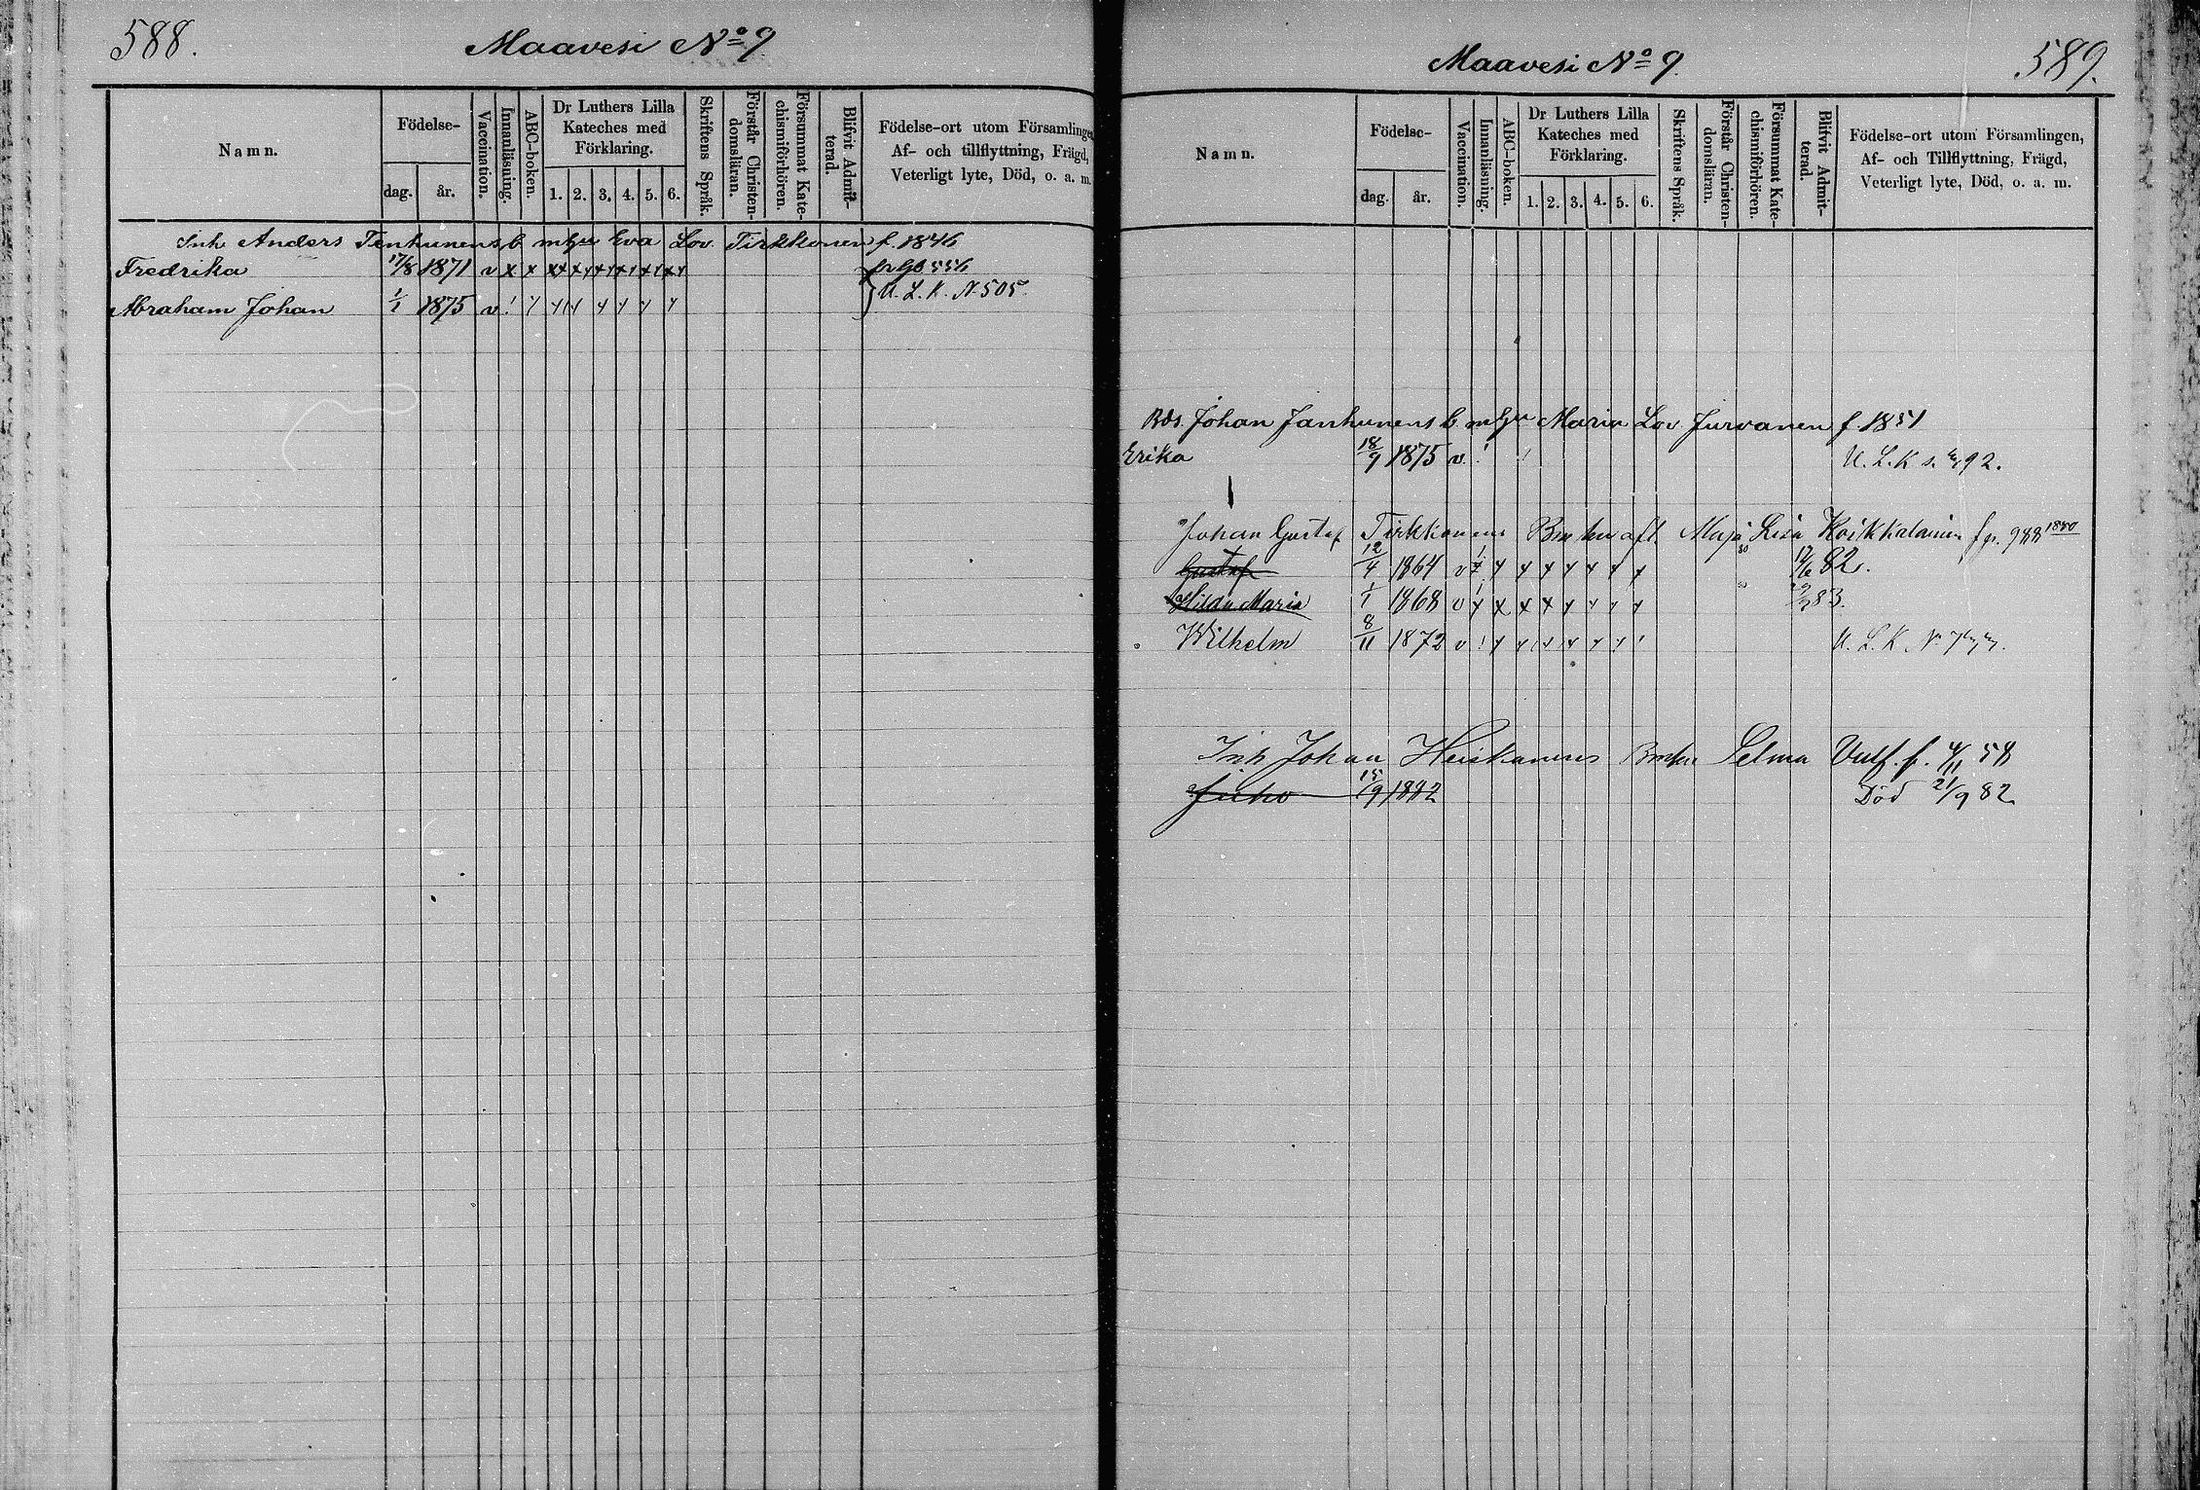 588.
Maavesi No 9
Namn.
Födelse-
dag.
år.
Vaccination.
Innanläsning.
ABC-boken.
Dr Luthers Lilla
Kateches med
Förklaring.
1. 2. 3. 4. 5. 6.
Skriftens Språk.
Förstår Christen-
domsläran.
Försummat Kate-
chismiförhören.
Blifvit Admit-
terad.
Födelse-ort utom Församlingen,
Af- och tillflyttning, Frägd,
Veterligt lyte, Död, o. a. m.
Inh Anders Tenhunens b. m hu Eva Lov. Tirkkonen f. 1846
Fredrika 17/8 1871 v x x 556
Abraham Johan 1/1 1875 v U. L. K. N. 505.
Maavesi No 9.
589.
Namn.
Födelse-
dag.
år.
Vaccination.
Innanläsning.
ABC-boken.
Dr Luthers Lilla
Kateches med
Förklaring.
1. 2. 3. 4. 5. 6.
Skriftens Språk.
Förstår Christen-
domsläran.
Försummat Kate-
chismiförhören.
Blifvit Admit-
terad.
Födelse-ort utom Församlingen,
Af- och Tillflyttning, Frägd,
Veterligt lyte, Död, o. a. m.
Johan Janhunens b. m hu Maria Lov. Jurvanen f. 1851
Erika 18/9 1875 v. U. L. K s. 92.
Johan Gustaf Tirkkonens Maja Lisa 1880
Gustaf 12/4 1864 v 82.
Maria 1/1 1868 v 83.
Wilhelm 8/11 1872 v U. L. K. N.
Inh Johan Heiskanens Selma Vulf. f. 4/11 58
Juho 15/9 1882 Död 21/9 82